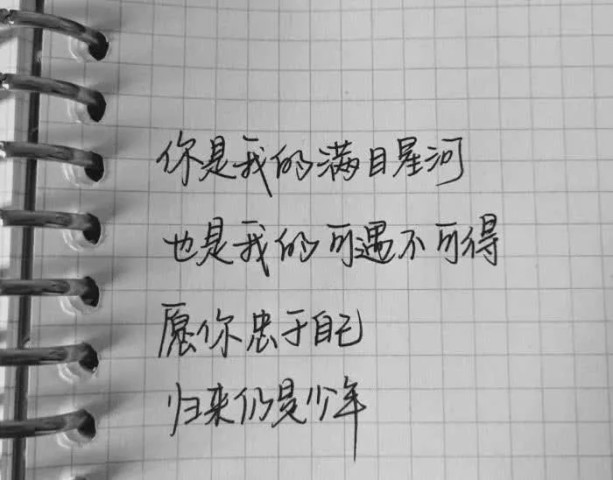 你是我的满目星河
也是我的可遇不可得
愿你忠于自己
归来仍是少年